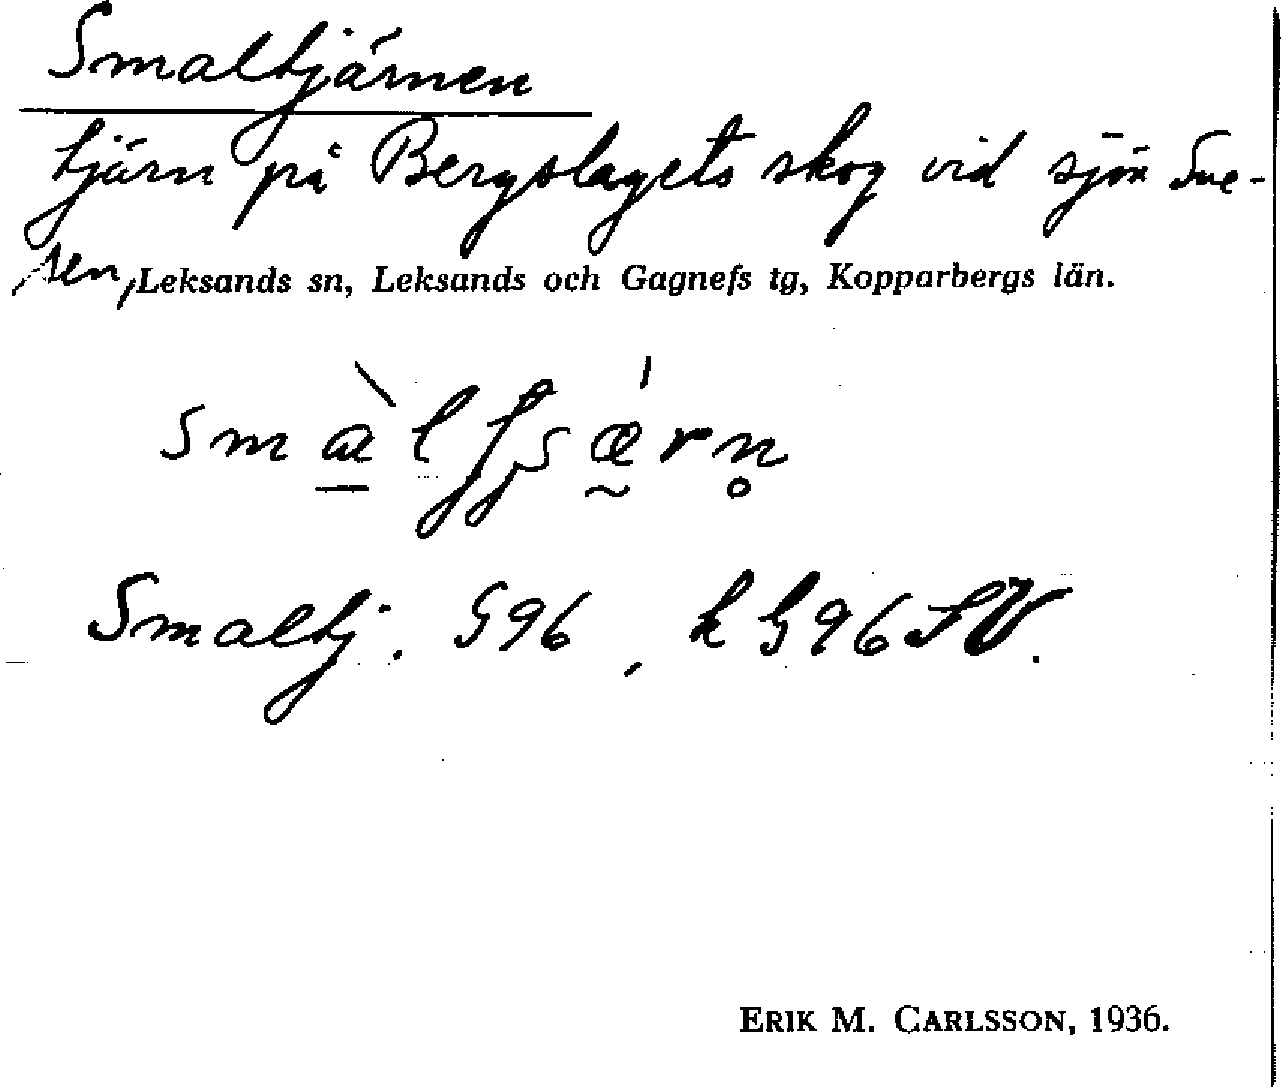 Smaltjärnen
tjärn på Bergslagets skog vid sjön Sve-
sen, Leksands sn, Leksands och Gagnefs tg, Kopparbergs län.
Smaltj. G96, k G96 SV.
ERIK M. CARLSSON, 1936.